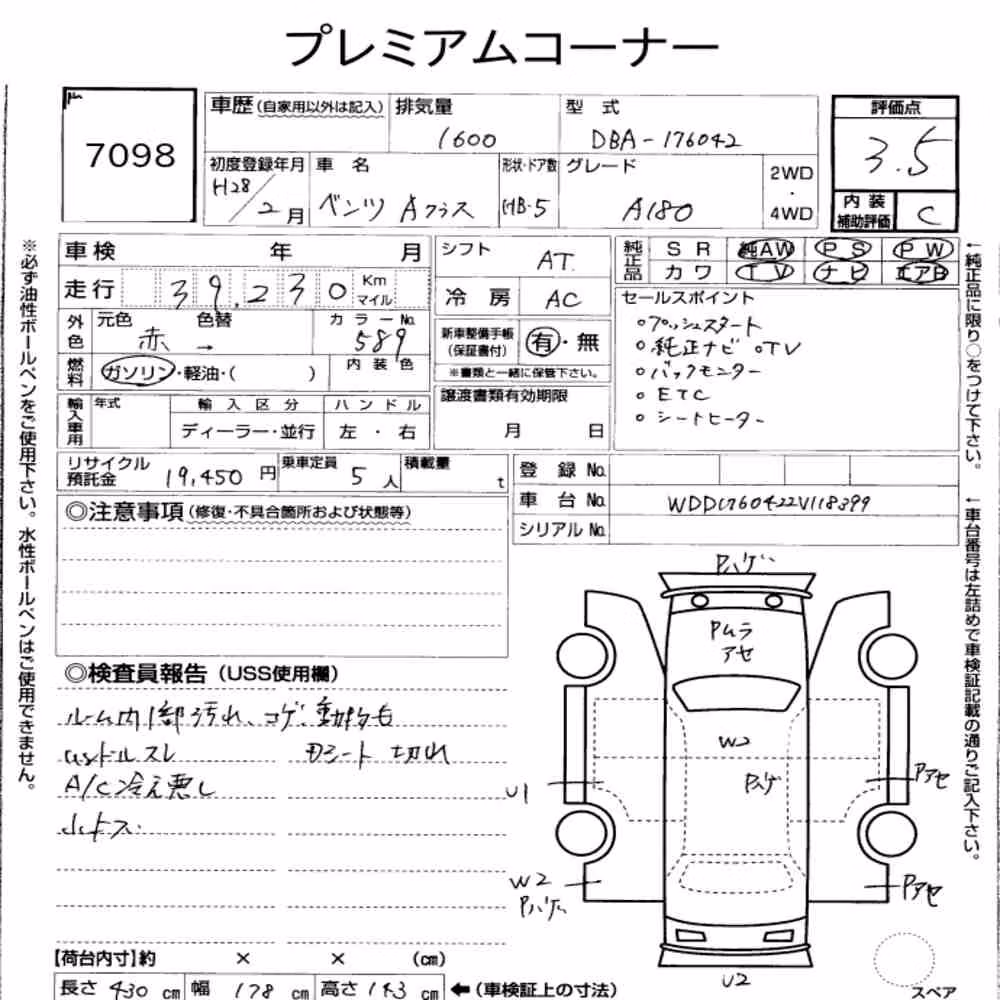 プレミアムコーナー
7098
車歴(自家用以外は記入)
排気量
1600
型 式
DBA-176042
評価点
3.5
初度登録年月
H28/2月
車 名
ベンツ Aクラス
形状・ドア数
HB・5
グレード
A180
2WD
・
4WD
内 装
補助評価
C
車検 年 月
走行 39,230 Km
マイル
外色
元色 色替
赤 →
カラーNo.
589
燃料
ガソリン・軽油・( )
内 装 色
輸入車用
年式
輸 入 区 分
ディーラー・並行
ハ ン ド ル
左 ・右
シフト
AT.
冷 房
AC
新車整備手帳
(保証書付)
有・無
※書類と一緒に保管下さい。
譲渡書類有効期限
月 日
純正品
SR 純AW PS PW
カワ TV ナビ エアB
セールスポイント
○プッシュスタート
○純正ナビ ○TV
○バックモニター
○ETC
○シートヒーター
リサイクル
預託金
19,450 円
乗車定員
5 人
積載量
t
登 録 No.
車 台 No.
WDD1760422V118399
シリアルNo.
◎注意事項(修復・不具合箇所および状態等)
◎検査員報告(USS使用欄)
ルーム内1部汚れ、コゲ、動物毛
ハンドルスレ
Dシート切れ
A/C冷え悪し
小キズ
Pハゲ
Pムラ
アセ
W2
Pハゲ
U1
Pアセ
W2
Pハゲ
Pアセ
U2
スペア
【荷台内寸】約 × × (cm)
長さ 430 cm 幅 178 cm 高さ 143 cm ←(車検証上の寸法)
※必ず油性ボールペンをご使用下さい。水性ボールペンはご使用できません。
←純正品に限り○をつけて下さい。
←車台番号は左詰めで車検証記載の通りご記入下さい。